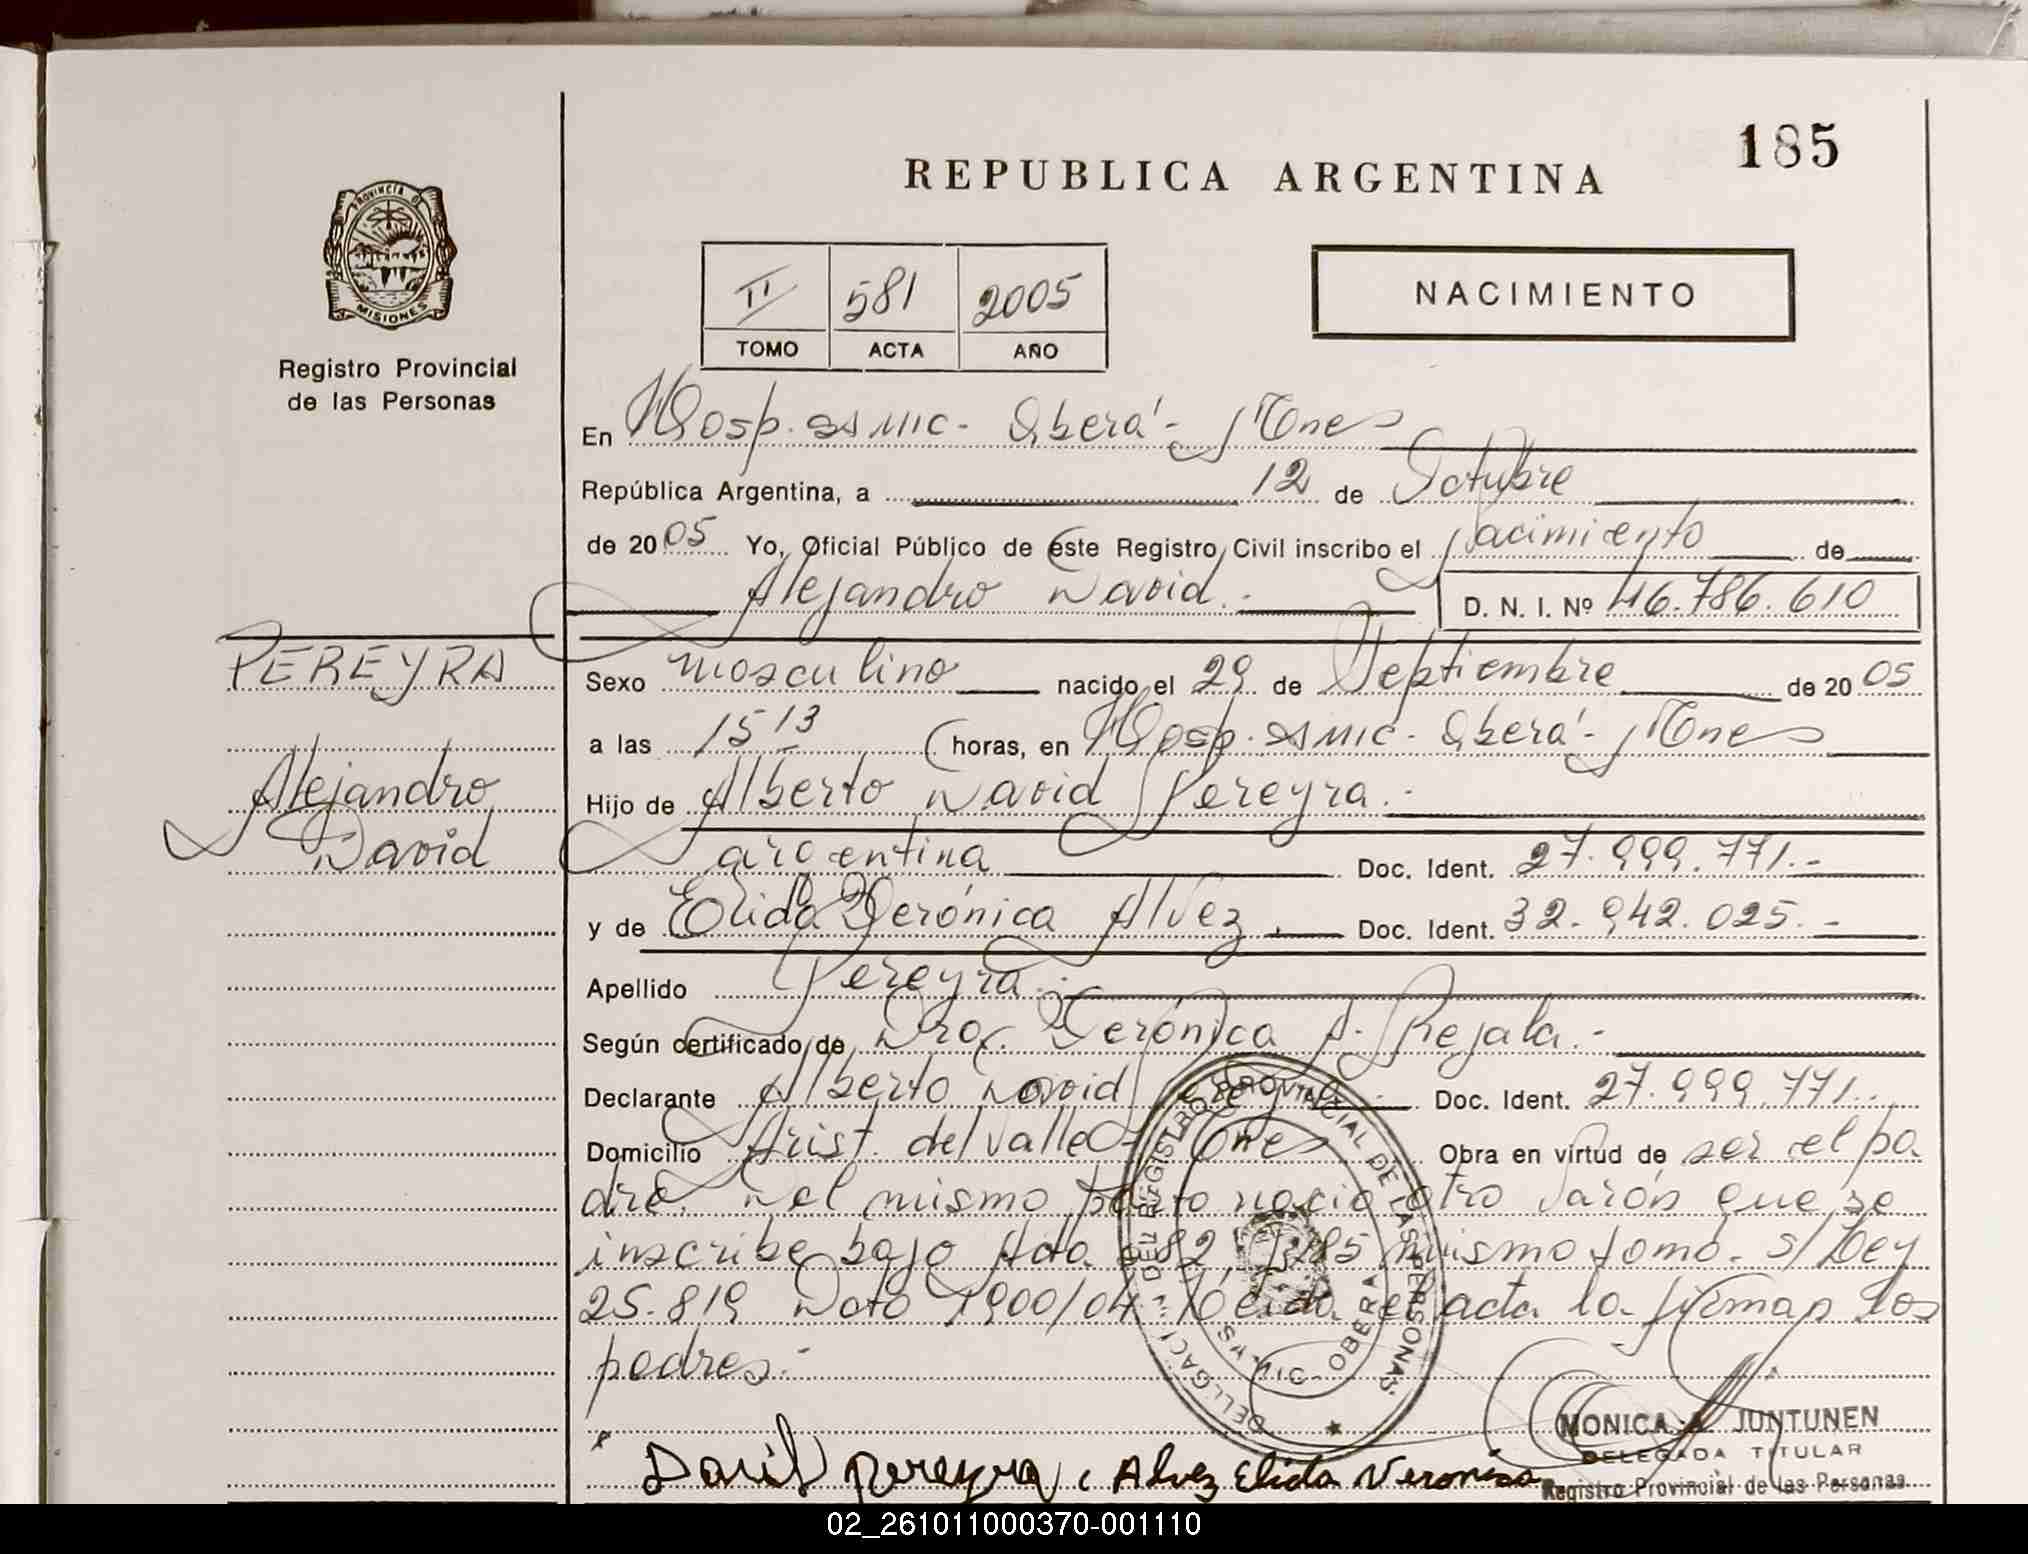 185
REPUBLICA ARGENTINA
PROVINCIA DE
MISIONES
Registro Provincial
de las Personas
II 581 2005
TOMO ACTA AÑO
NACIMIENTO
En Hosp. SSMIC - Oberá - Mnes
República Argentina, a 12 de Octubre
de 2005 Yo, Oficial Público de este Registro Civil inscribo el Nacimiento de
Alejandro David.- D. N. I. Nº 46.786.610
PEREYRA
Alejandro
David
Sexo masculino nacido el 29 de Septiembre de 2005
a las 15 13 horas, en Hosp. SSMIC - Oberá - Mnes
Hijo de Alberto David Pereyra.-
argentina Doc. Ident. 27.999.771.-
y de Elida Verónica Alvez.- Doc. Ident. 32.942.025.-
Apellido Pereyra.-
Según certificado de Dra. Verónica A. Rejala.-
Declarante Alberto David Pereyra Doc. Ident. 27.999.771.
Domicilio Arist. del Valle - Mnes Obra en virtud de ser el pa
dre. Del mismo parto nació otro Varón que se
inscribe bajo Acta 582, mismo tomo. S/Ley
25.819 1900/04 Leída el acta la firman los
padres.-
David Pereyra Alvez Elida Veronica
OBERA
MONICA A. JUNTUNEN
DELEGADA TITULAR
Registro Provincial de las Personas
02_261011000370-001110